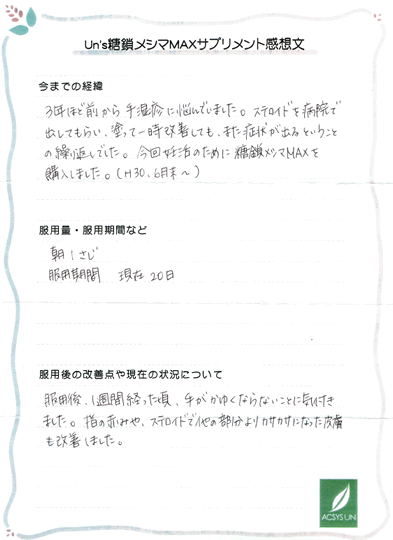 Un's糖鎖メシマMAXサプリメント感想文
今までの経緯
3年ほど前から手湿疹に悩んでいました。ステロイドを病院で
出してもらい、塗って一時改善しても、また症状が出るということ
の繰り返しでした。今回妊活のために糖鎖メシマMAXを
購入しました。(H30.6月末～)
服用量・服用期間など
朝1さじ
服用期間 現在20日
服用後の改善点や現在の状況について
服用後、1週間経った頃、手がかゆくならないことに気付き
ました。指の赤みや、ステロイドで他の部分よりカサカサになった皮膚
も改善しました。
ACSYS UN